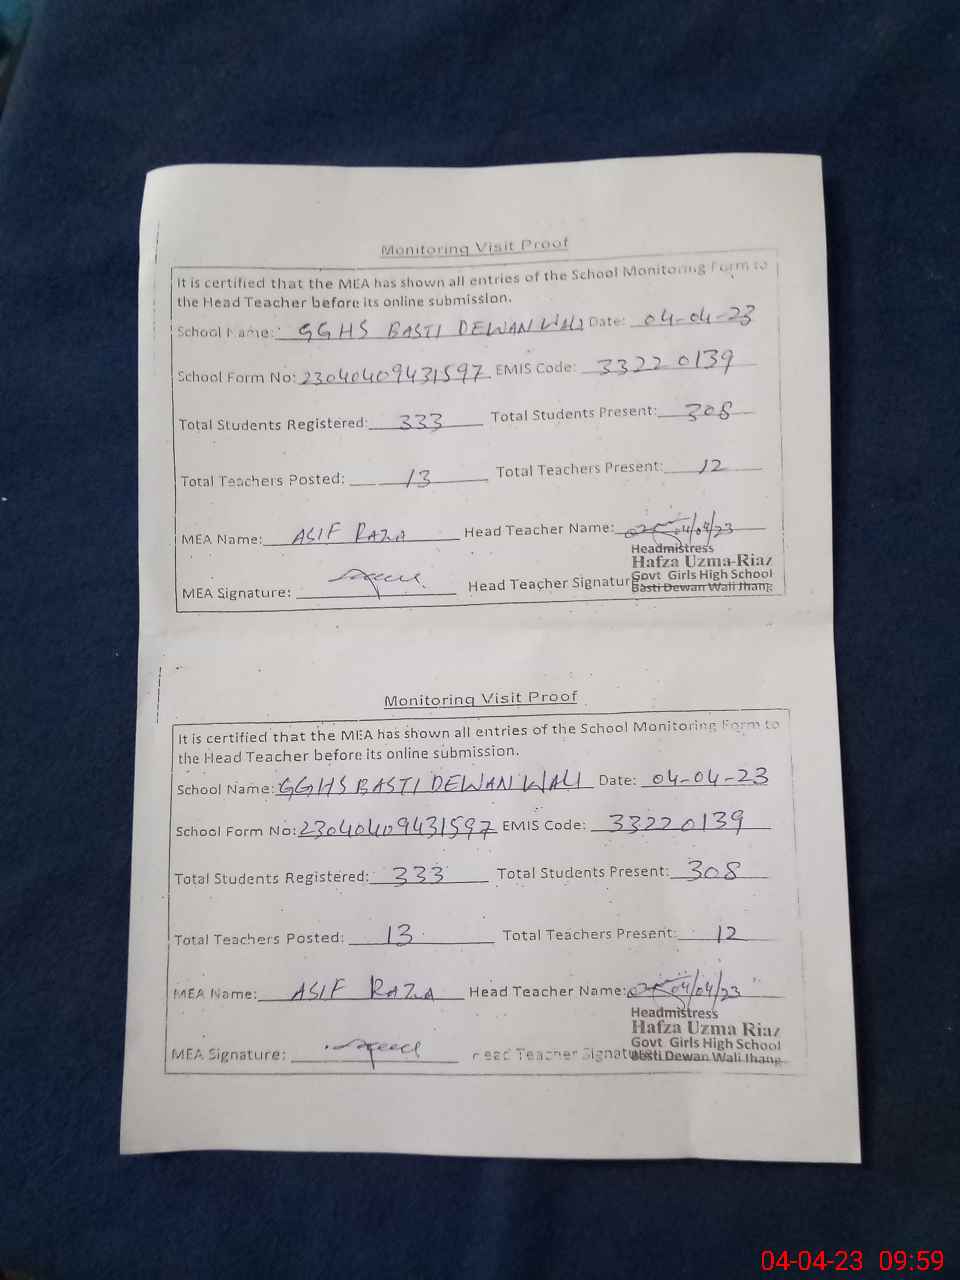 Monitoring Visit Proof
It is certified that the MEA has shown all entries of the School Monitoring Form to
the Head Teacher before its online submission.
School Name: GGHS BASTI DEWAN WALI Date: 04-04-23
School Form No: 23040409431597 EMIS Code: 33220139
Total Students Registered: 333 Total Students Present: 308
Total Teachers Posted: 13 Total Teachers Present: 12
MEA Name: ASIF RAZA Head Teacher Name: 04/04/23
Headmistress
Hafza Uzma-Riaz
Govt Girls High School
MEA Signature: Head Teacher Signature
Basti Dewan Wali Jhang
Monitoring Visit Proof
It is certified that the MEA has shown all entries of the School Monitoring Form to
the Head Teacher before its online submission.
School Name: GGHS BASTI DEWAN WALI Date: 04-04-23
School Form No: 23040409431597 EMIS Code: 33220139
Total Students Registered: 333 Total Students Present: 308
Total Teachers Posted: 13 Total Teachers Present: 12
MEA Name: ASIF RAZA Head Teacher Name: 04/04/23
Headmistress
Hafza Uzma Riaz
Govt Girls High School
MEA Signature: Head Teacher Signature
Basti Dewan Wali Jhang
04-04-23 09:59